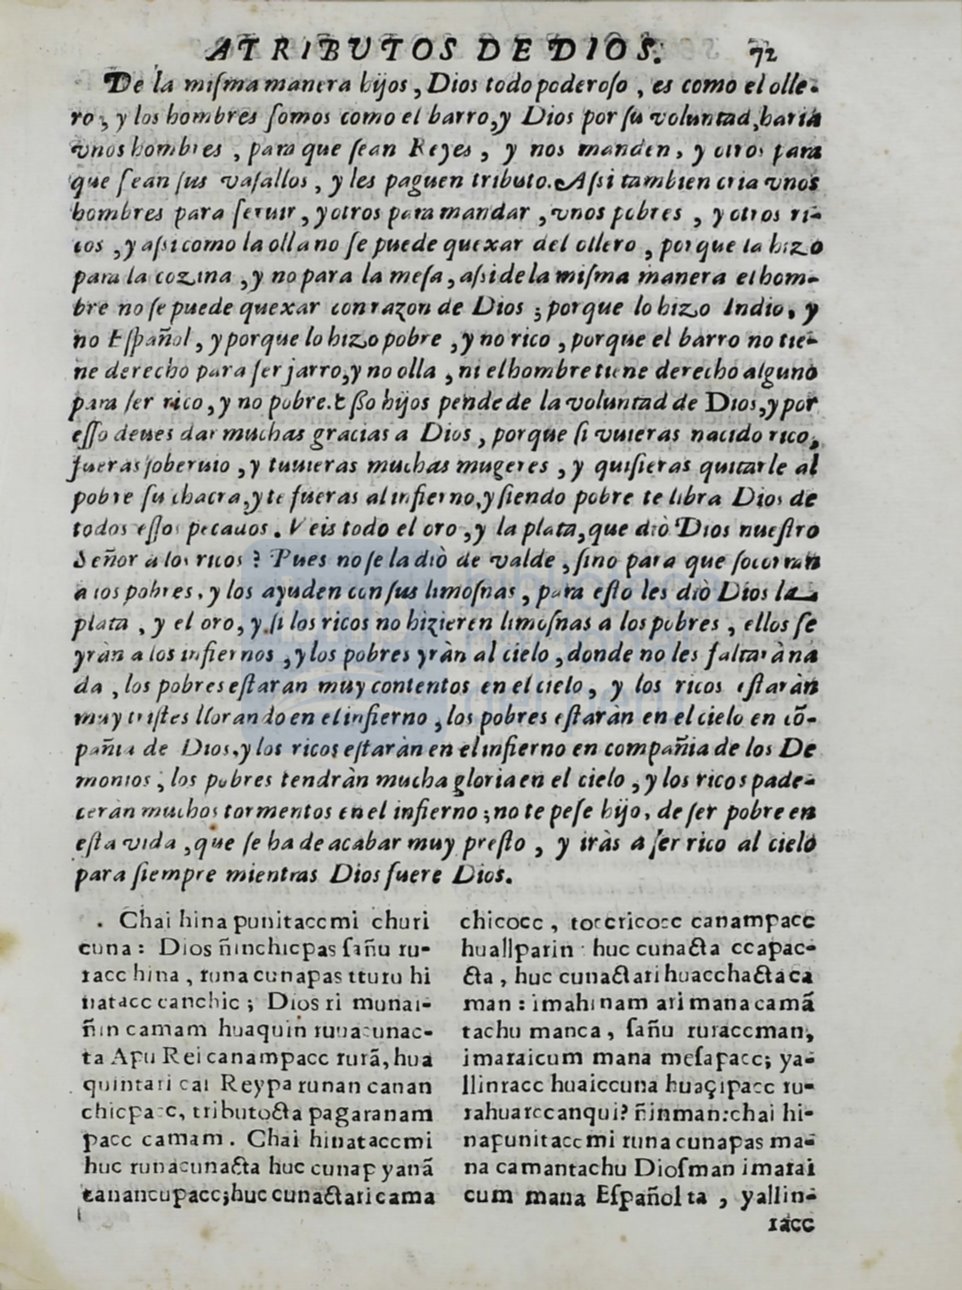 ATRIBUTOS DE DIOS. 72
De la miſma manera hijos, Dios todo poderoſo, es como el olle-
ro, y los hombres ſomos como el barro, y Dios por ſu voluntad, haria
vnos hombres, para que ſean Reyes, y nos manden, y otros para
que ſean ſus vaſallos, y les paguen tributo. Aſsi tambien cria vnos
hombres para ſeruir, y otros para mandar, vnos pobres, y otros ri-
cos, y aſsi como la olla no ſe puede quexar del ollero, porque la hizo
para la cozina, y no para la meſa, aſsi de la miſma manera el hom-
bre no ſe puede quexar con razon de Dios; porque lo hizo Indio, y
no Eſpañol, y porque lo hizo pobre, y no rico, porque el barro no tie-
ne derecho para ſer jarro, y no olla, ni el hombre tiene derecho alguno
para ſer rico, y no pobre. Eſſo hijos pende de la voluntad de Dios, y por
eſſo deues dar muchas gracias a Dios, porque ſi vuieras nacido rico,
fueras ſoberuio, y tuuieras muchas mugeres, y quiſieras quitarle al
pobre ſu chacra, y te fueras al infierno, y ſiendo pobre te libra Dios de
todos eſſos pecados. Veis todo el oro, y la plata, que diò Dios nueſtro
Señor a los ricos? Pues no ſe la diò de valde, ſino para que ſocorran
a los pobres, y los ayuden con ſus limoſnas, para eſto les diò Dios la
plata, y el oro, y ſi los ricos no hizieren limoſnas a los pobres, ellos ſe
yràn a los infiernos, y los pobres yràn al cielo, donde no les faltarà na
da, los pobres eſtaran muy contentos en el cielo, y los ricos eſtaràn
muy triſtes llorando en el infierno, los pobres eſtaràn en el cielo en cõ-
pañia de Dios, y los ricos eſtaràn en el infierno en compañia de los De
monios, los pobres tendràn mucha gloria en el cielo, y los ricos pade-
ceràn muchos tormentos en el infierno; no te peſe hijo, de ſer pobre en
eſta vida, que ſe ha de acabar muy preſto, y iràs a ſer rico al cielo
para ſiempre mientras Dios fuere Dios.
Chai hina punitaccmi churi
cuna: Dios ñinchicpas ſañu ru-
racc hina, runacunapas tturu hi
natacc canchic; Dios ri munai-
ñin camam huaquin runacunac-
ta Apu Rei canampacc rurã, hua
quintari cai Reypa runan canan
chicpacc, tributoĉta pagaranam
pacc camam. Chai hinataccmi
huc runacunaĉta huc cunap yanã
canancupacc; huc cunaĉtari cama
chicocc, toccricocc canampacc
huallparin: huc cunaĉta ccapac-
ĉta, huc cunaĉtari huacchaĉtaca
man: imahinam ari mana camã
tachu manca, ſañu ruraccman,
imaraicum mana meſapacc; ya-
llinracc huaiccuna huaçipacc ru-
rahuarccanqui? ñinman: chai hi-
napunitaccmi runacunapas ma-
na camantachu Dioſman imarai
cum mana Eſpañolta, yallin-
racc